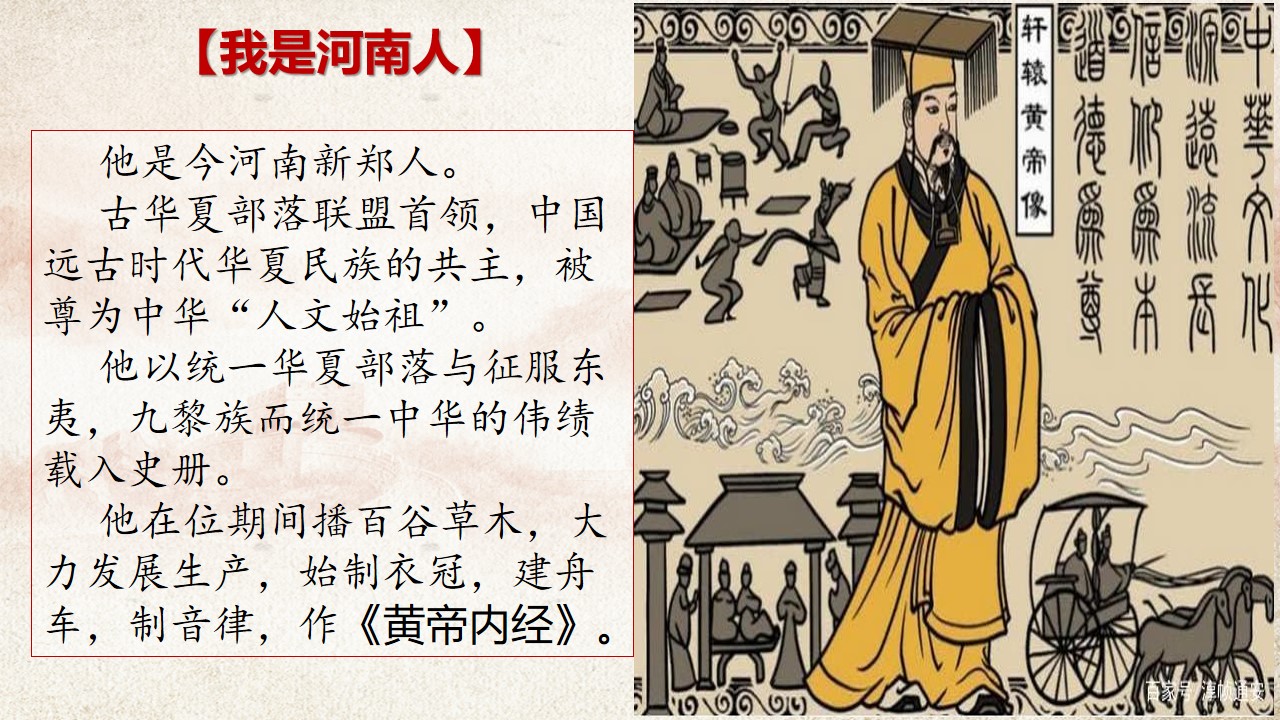 【我是河南人】
他是今河南新郑人。
古华夏部落联盟首领，中国
远古时代华夏民族的共主，被
尊为中华“人文始祖”。
他以统一华夏部落与征服东
夷，九黎族而统一中华的伟绩
载入史册。
他在位期间播百谷草木，大
力发展生产，始制衣冠，建舟
车，制音律，作《黄帝内经》。
轩辕黄帝像
中华文化
源远流长
信仰为本
道德为尊
百家号